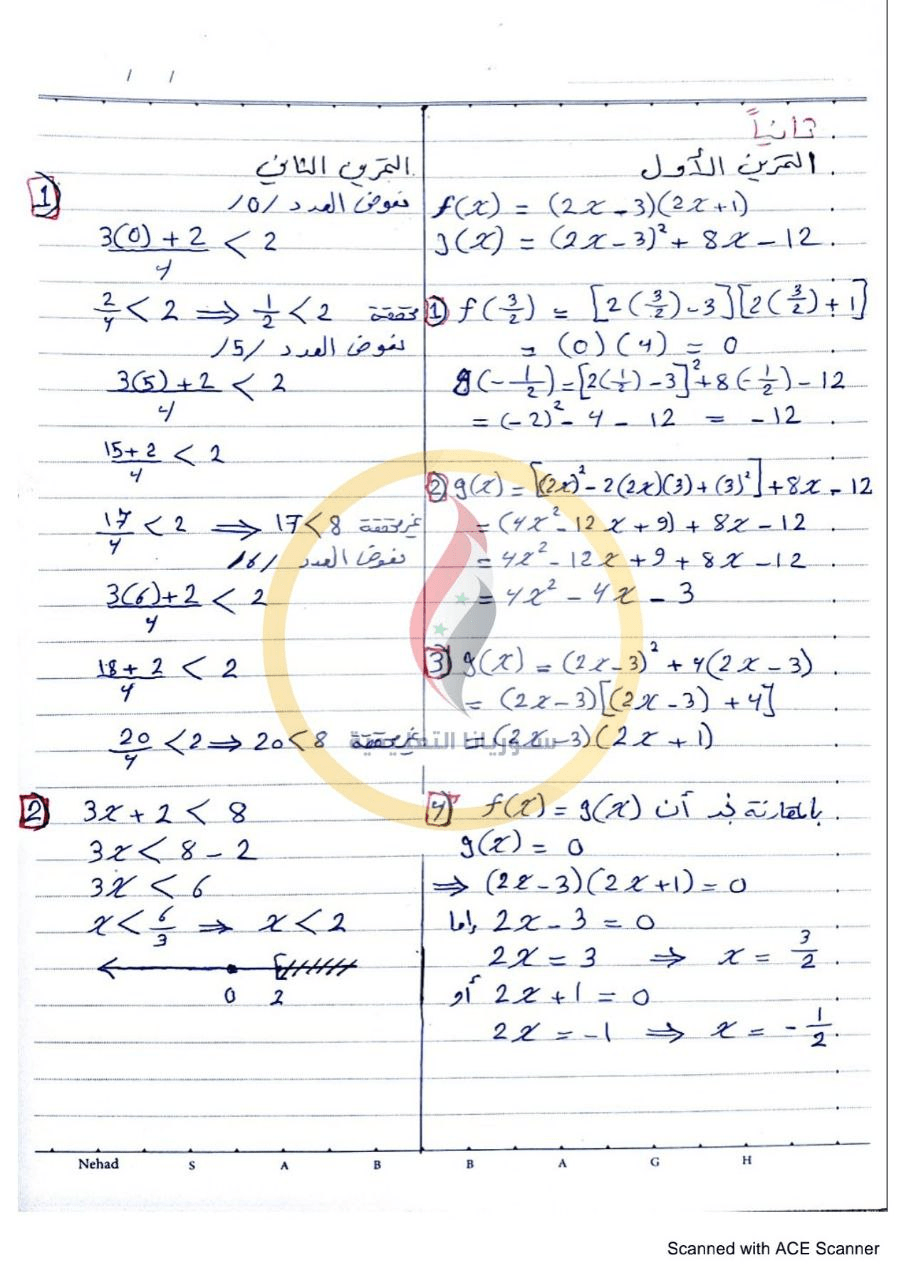 ثانياً
التمرين الأول
f(x) = (2x - 3)(2x + 1)
g(x) = (2x - 3)² + 8x - 12
1 f(3/2) = [2(3/2) - 3][2(3/2) + 1]
= (0)(4) = 0
g(-1/2) = [2(1/2) - 3]² + 8(-1/2) - 12
= (-2)² - 4 - 12 = -12
2 g(x) = [(2x)² - 2(2x)(3) + (3)²] + 8x - 12
= (4x² - 12x + 9) + 8x - 12
= 4x² - 12x + 9 + 8x - 12
= 4x² - 4x - 3
3 g(x) = (2x - 3)² + 4(2x - 3)
= (2x - 3)[(2x - 3) + 4]
= (2x - 3)(2x + 1)
4 بالمقارنة نجد أن f(x) = g(x)
g(x) = 0
⇒ (2x - 3)(2x + 1) = 0
إما 2x - 3 = 0
2x = 3 ⇒ x = 3/2
أو 2x + 1 = 0
2x = -1 ⇒ x = -1/2
التمرين الثاني
1 نعوض العدد /0/
3(0) + 2/4 < 2
2/4 < 2 ⇒ 1/2 < 2 محققة
نعوض العدد /5/
3(5) + 2/4 < 2
15 + 2/4 < 2
17/4 < 2 ⇒ 17 < 8 غير محققة
نعوض العدد /6/
3(6) + 2/4 < 2
18 + 2/4 < 2
20/4 < 2 ⇒ 20 < 8 غير محققة
2 3x + 2 < 8
3x < 8 - 2
3x < 6
x < 6/3 ⇒ x < 2
0 2
سوريانا التعليمية
Nehad S A B B A G H
Scanned with ACE Scanner